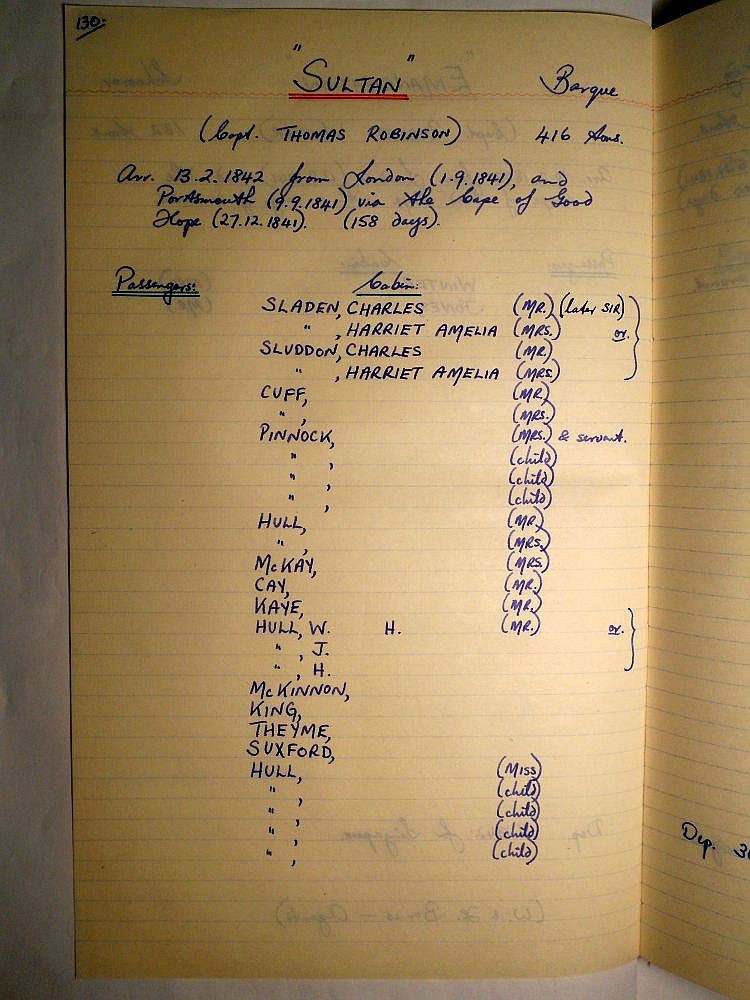 130.
"SULTAN" Barque
(Capt. THOMAS ROBINSON) 416 tons.
Arr. 13.2.1842 from London (1.9.1841), and
Portsmouth (9.9.1841) via the Cape of Good
Hope (27.12.1841). (158 days).
Passengers: Cabin:
SLADEN, CHARLES (MR.) (later SIR)
" , HARRIET AMELIA (MRS.) or.
SLUDDON, CHARLES (MR.)
" , HARRIET AMELIA (MRS.)
CUFF, (MR.)
" , (MRS.)
PINNOCK, (MRS.) & servant.
" , (child)
" , (child)
" , (child)
HULL, (MR.)
" , (MRS.)
McKAY, (MRS.)
CAY, (MR.)
KAYE, (MR.)
HULL, W. H. (MR.) or.
" , J.
" , H.
McKINNON,
KING,
THEYME,
SUXFORD,
HULL, (MISS)
" , (child)
" , (child)
" , (child)
" , (child)
Dep. 30